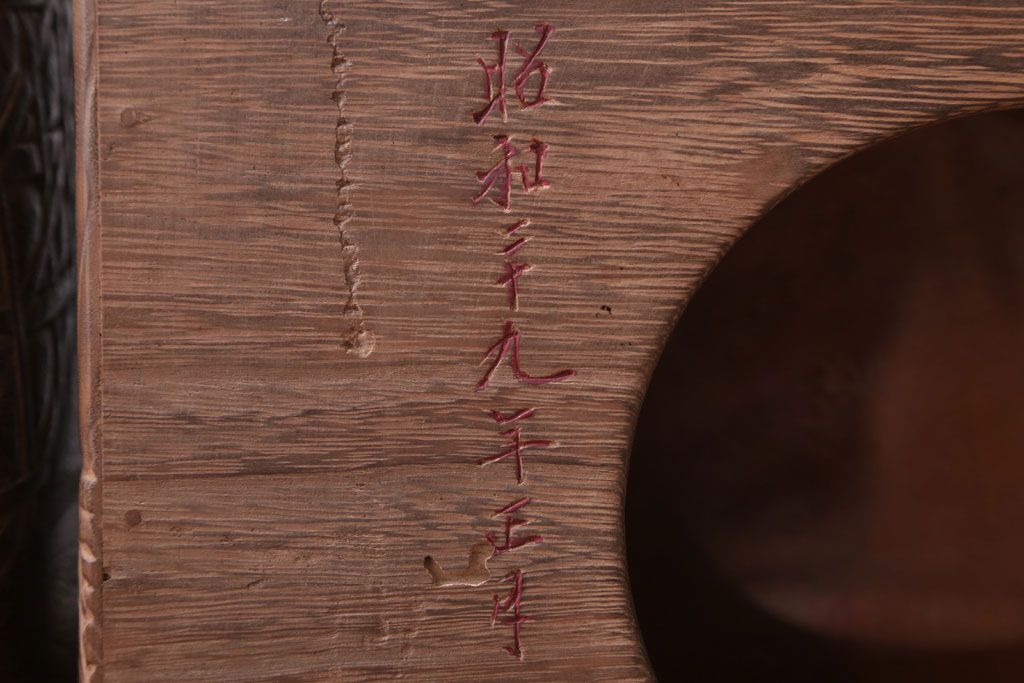 昭和二十九年正月